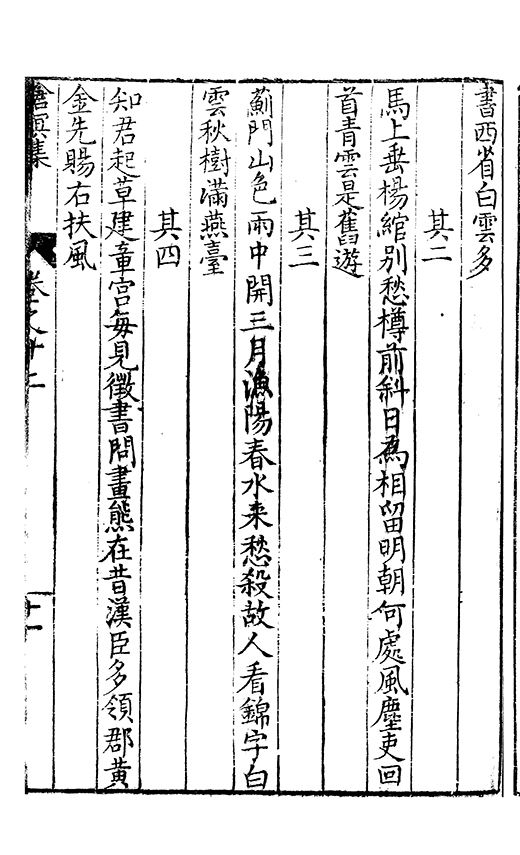 書西省白雲多
其二
馬上垂楊綰别愁樽前斜日爲相留明朝何處風塵吏回
首青雲是舊遊
其三
薊門山色雨中開三月漁陽春水来愁殺故人看錦字白
雲秋樹滿燕臺
其四
知君起草建章宫每見徵書問畫熊在昔漢臣多領郡黄
金先賜右扶風
滄溟集
卷之十二
十一